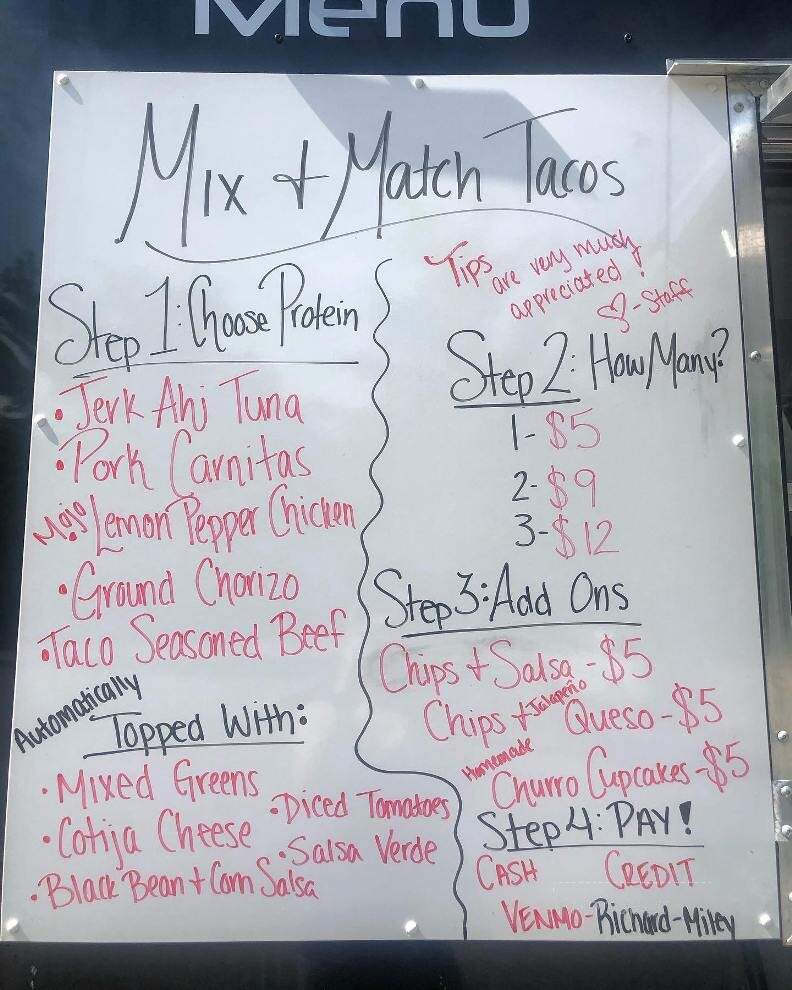 Menu
Mix + Match Tacos
Step 1: Choose Protein
• Jerk Ahi Tuna
• Pork Carnitas
Mojo Lemon Pepper Chicken
• Ground Chorizo
• Taco Seasoned Beef
Automatically
Topped With:
• Mixed Greens
• Diced Tomatoes
• Cotija Cheese
• Salsa Verde
• Black Bean + Corn Salsa
Tips are very much
appreciated!
♡ - Staff
Step 2: How Many?
1- $5
2- $9
3- $12
Step 3: Add Ons
Chips + Salsa - $5
Chips + Jalapeño Queso - $5
Homemade
Churro Cupcakes - $5
Step 4: PAY!
CASH CREDIT
VENMO - Richard-Miley